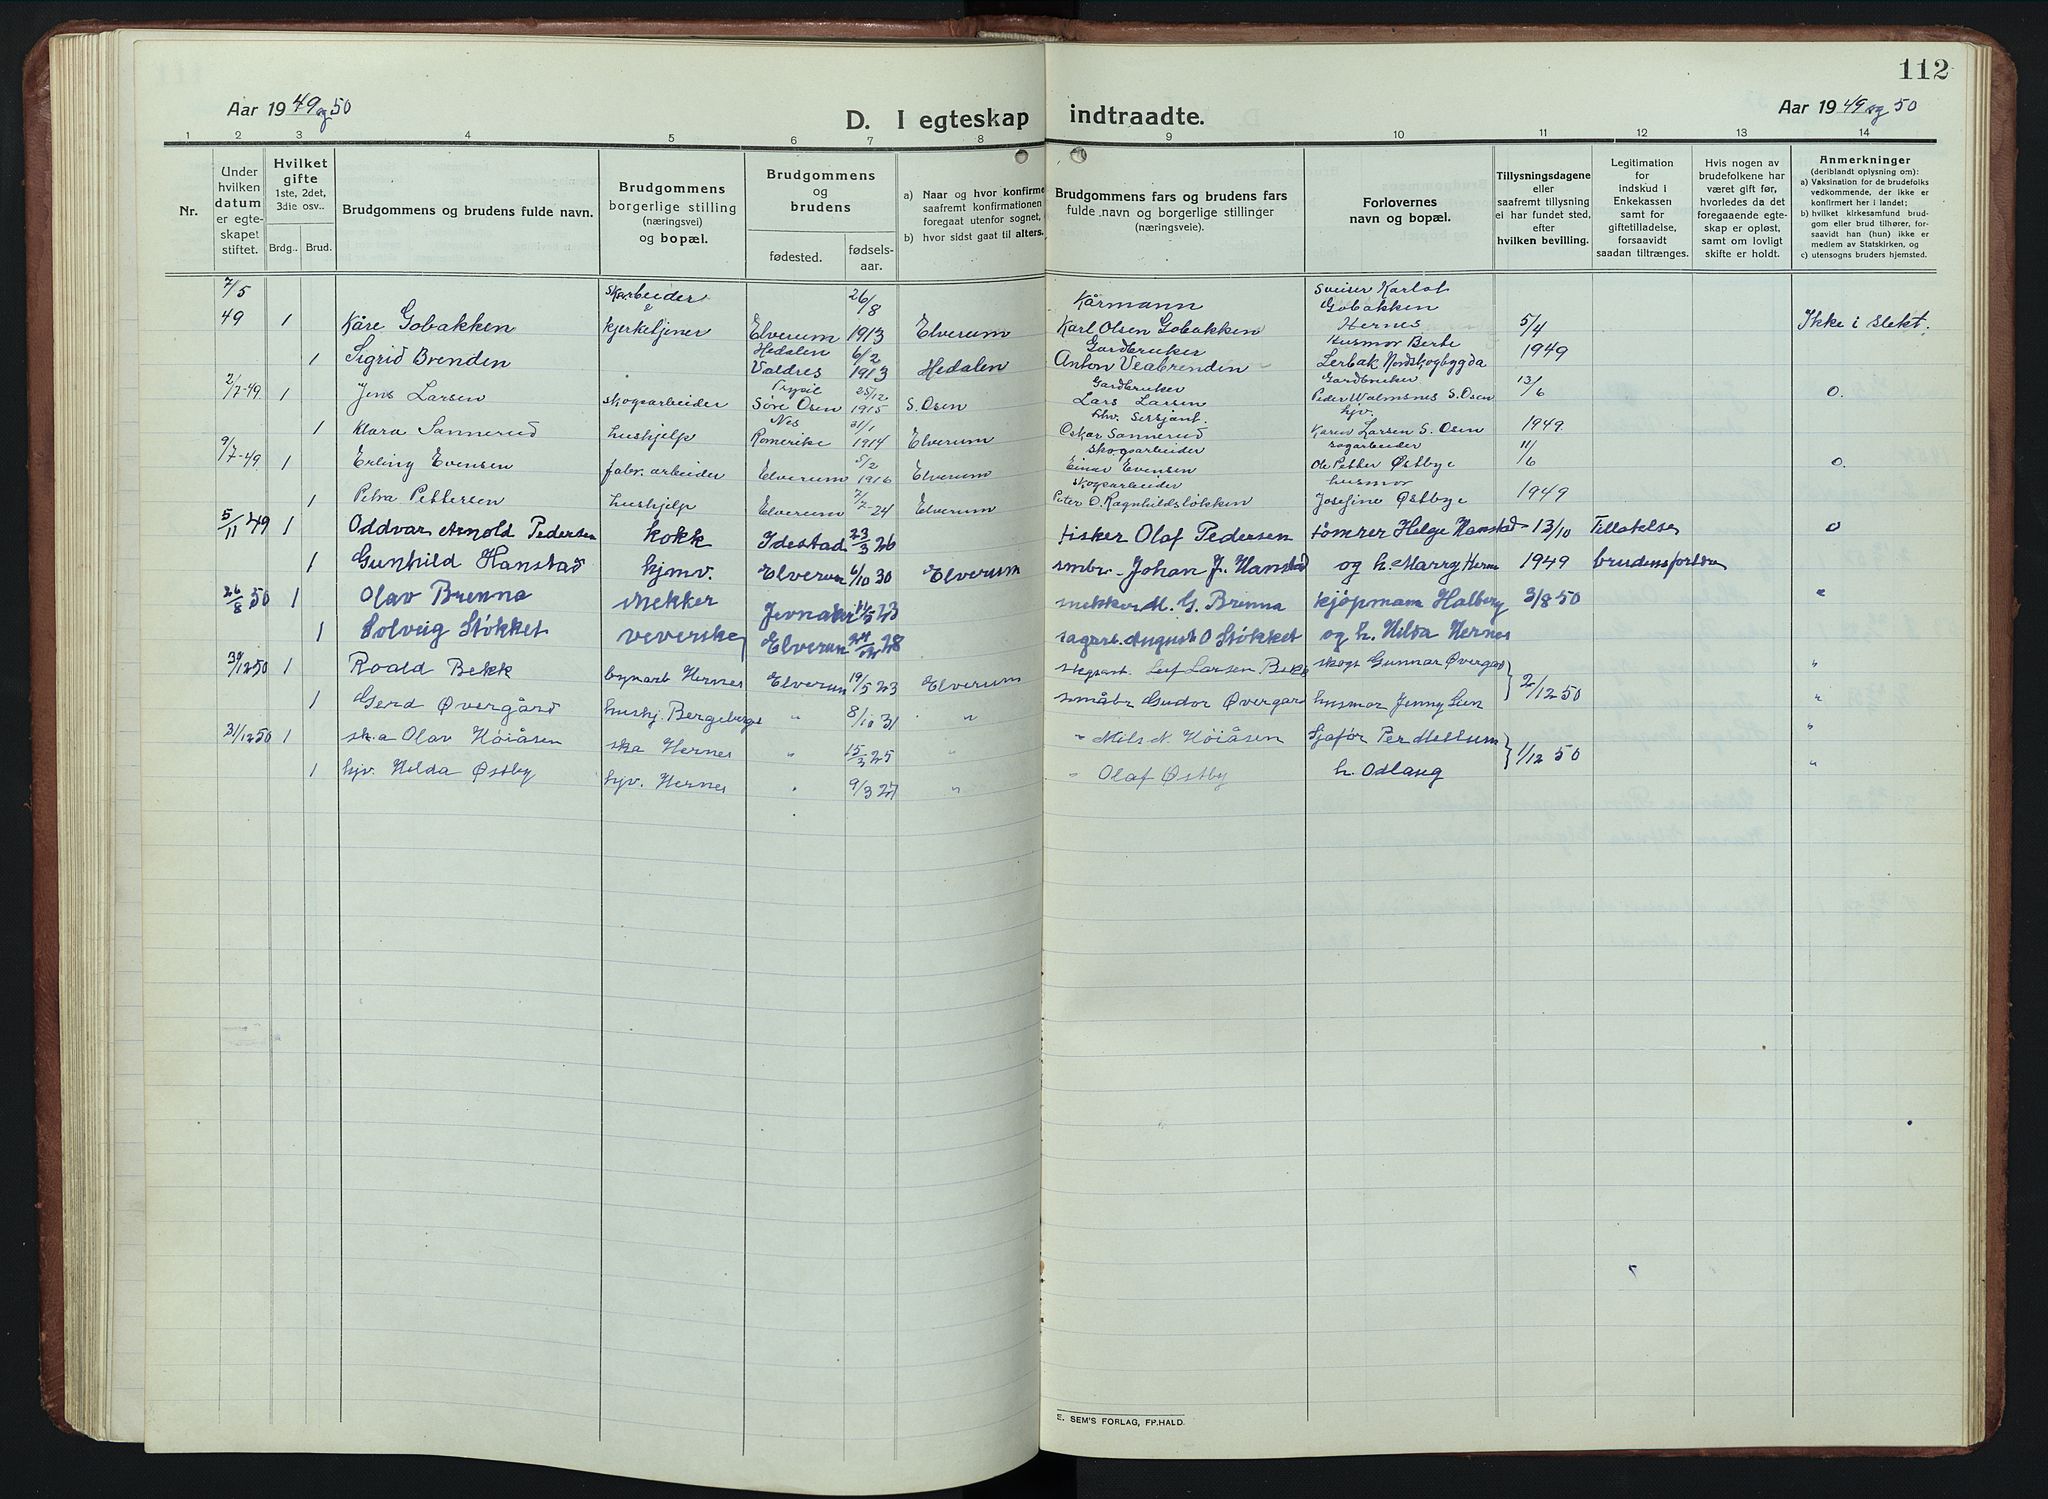 112
Aar 19 49 og 50
D. I egteskap indtraadte.
Aar 19 49 og 50
1 2 3 4 5 6 7 8 9 10 11 12 13 14
Nr.
Under hvilken datum er egteskapet stiftet.
Hvilket gifte 1ste, 2det, 3die osv..
Brdg.. Brud.
Brudgommens og brudens fulde navn.
Brudgommens borgerlige stilling (næringsvei) og bopæl.
Brudgommens og brudens
fødested. fødselsaar.
a) Naar og hvor konfirme
saafremt konfirmationen
foregaat utenfor sognet,
b) hvor sidst gaat til alters.
Brudgommens fars og brudens fars fulde navn og borgerlige stillinger (næringsveie).
Forlovernes navn og bopæl.
Tillysningsdagene eller saafremt tillysning ei har fundet sted, efter hvilken bevilling.
Legitimation for indskud i Enkekassen samt for giftetilladelse, forsaavidt saadan tiltrænges.
Hvis nogen av brudefolkene har været gift før, hvorledes da det foregaaende egteskap er opløst, samt om lovligt skifte er holdt.
Anmerkninger (deriblandt oplysning om):
a) Vaksination for de brudefolks vedkommende, der ikke er konfirmert her i landet;
b) hvilket kirkesamfund brudgom eller brud tilhører, forsaavidt han (hun) ikke er medlem av Statskirken, og
c) utensogns bruders hjemsted.
7/5 skarbeider 26/8 Kårmann Sveiser Karlot Gobakken
49 1 Kåre Gobakken kjerketjener Elverum 1913 Elverum Karl Olsen Gobakken Hernes 5/4 Ikke i slekt.
1 Sigrid Brenden Hedalen Valdres 6/2 1913 Hedalen Gardbruker Anton Veabrenden Husmor Berte Lerbak Nordskogbygda 1949
2/7-49 1 Jens Larsen skogsarbeider Trysil Søre Osen 25/12 1915 S. Osen Gardbruker Lars Larsen Gardbruker Peder Valmsnes S. Osen 13/6 0.
1 Klara Sannerud hushjelp Nes Romerike 31/1 1914 Elverum fhv. Sersjant. Oskar Sannerud hjv. Karen Larsen S. Osen 1949
9/7-49 1 Erling Evensen fabr. arbeider Elverum 5/2 1916 Elverum skogsarbeider Einar Evensen sagarbeider Ole Petter Østbye 11/6 0.
1 Petra Pettersen hushjelp Elverum 7/7-24 Elverum skogsarbeider Peter O. Ragnhildsløkken husmor Josefine Østbye 1949
5/11 49 1 Oddvar Arnold Pedersen kokk Idestad 23/3 26 fisker Olaf Pedersen tømrer Helge Hanstad 13/10 Tillatelse 0
1 Gunhild Hanstad hjmv. Elverum 6/10 30 Elverum smbr. Johan J. Hanstad og h. Marry Hernes 1949 brudens foreldre
26/8 50 1 Olav Brenna snekker Jevnaker 11/5 23 snekker M. G. Brenna kjøpmann Halberg 3/8 50 "
1 Solveig Støkket veverske Elverum 28 sagarb. August O Støkket og h. Hilda Hernes
30/12 50 1 Roald Bekk Hernes Elverum 19/5 23 Elverum Leif Larsen Bekk skogs Gunnar Øvergård 2/12 50 "
1 Gerd Øvergård hushj. Bergeberget " 8/10 31 " småbr Gudor Øvergård husmor Jenny Lien "
31/12 50 1 sk.a Olav Høiåsen ska Hernes " 15/3 25 " " Nils N. Høiåsen Sjafør Per Mellum 1/12 50 "
1 hjv. Hilda Østby hjv. Hernes " 9/3 27 " " Olaf Østby h. Odlaug "
E. SEM'S FORLAG, FR.HALD.